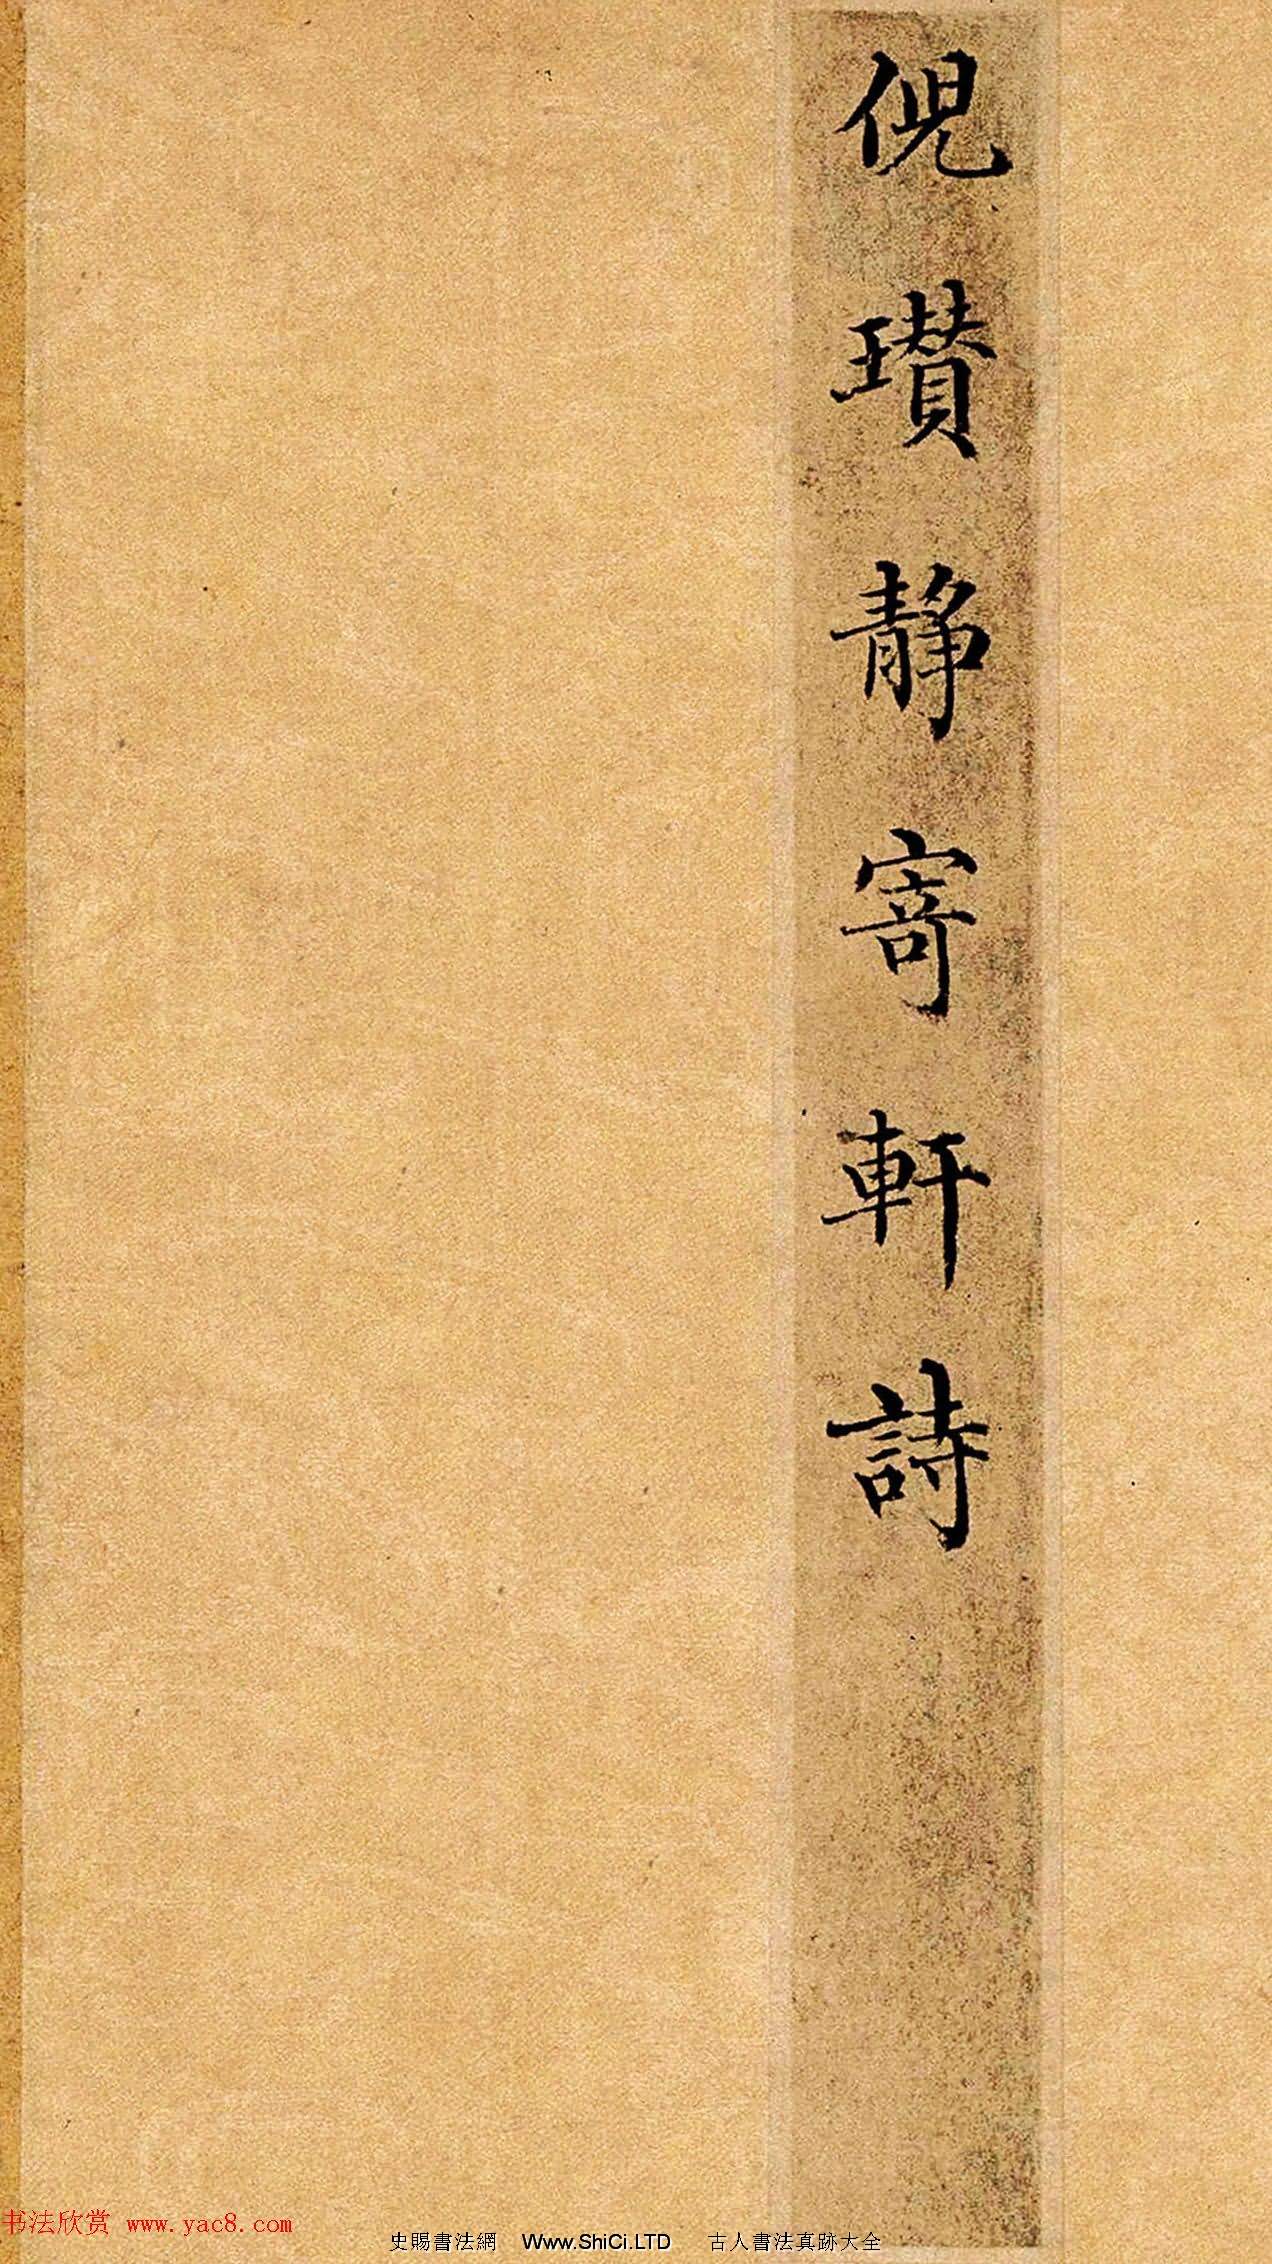 倪瓚靜寄軒詩
书法欣赏 www.yac8.com
史賜書法網 Www.ShiCi.LTD 古人書法真跡大全